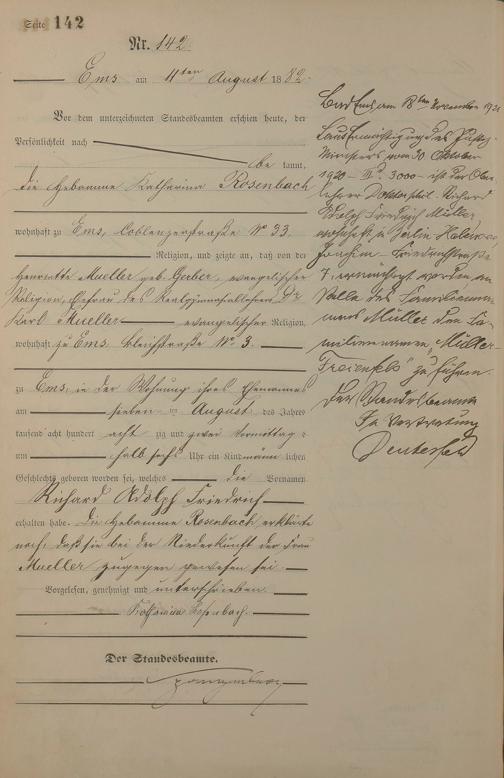 Seite 142
Nr. 142.
Ems am 11ten August 1882.
Vor dem unterzeichneten Standesbeamten erschien heute, der
Persönlichkeit nach
be kannt,
die Hebamme Katharina Rosenbach
wohnhaft zu Ems, Coblenzerstraße No 33.
Religion, und zeigte an, daß von der
Henriette Mueller geb. Gerber, evangelischer
Religion, Ehefrau des Dr
Karl Mueller evangelischer Religion,
wohnhaft zu Ems No 3.
zu Ems, in der Wohnung ihres Ehemannes
am sieben ten August des Jahres
tausend acht hundert acht zig und zwei Vormittags
um halb sechs Uhr ein Kind männ lichen
Geschlechts geboren worden sei, welches die Vornamen
Richard Adolph Friedrich
erhalten habe. Die Hebamme Rosenbach erklärte
noch, daß sie bei der Niederkunft der Frau
Mueller zugegen gewesen sei.
Vorgelesen, genehmigt und unterschrieben.
Katharina Rosenbach.
Der Standesbeamte.
Bad Ems am 18ten November 192
Laut Ermächtigung des Justiz-
Ministers vom 30 Oktober
1920 3000 ist der Ober
lehrer Richard
Adolph Friedrich Müller,
wohnhaft in Berlin
Joachim-Friedrichstraße
7 ermächtigt worden an
Stelle des Familienna
mens Müller den Fa-
miliennamen "Müller-
Freienfels" zu führen.
Der Standesbeamte
In Vertretung